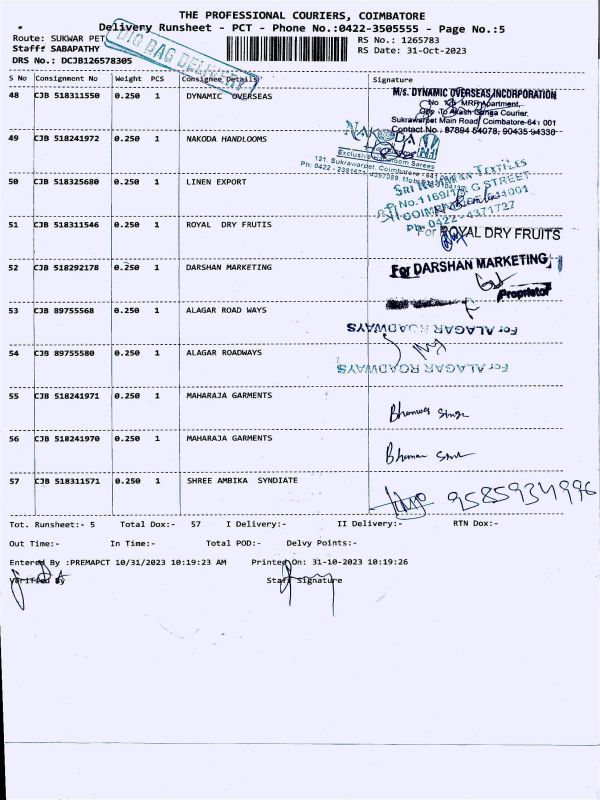 THE PROFESSIONAL COURIERS, COIMBATORE
Delivery Runsheet - PCT - Phone No.:0422-3505555 - Page No.:5
Route: SUKWAR PET
RS No.: 1265783
Staff: SABAPATHY
RS Date: 31-Oct-2023
DRS No.: DCJB126578305
BIG BAG DELIVERY
S No Consignment No Weight PCS Consignee Details Signature
48 CJB 518311550 0.250 1 DYNAMIC OVERSEAS
M/s. DYNAMIC OVERSEAS INCORPORATION
MRR Apartment,
Ganga Courier,
Sukrawarpet Main Road, Coimbatore-641 001
49 CJB 518241972 0.250 1 NAKODA HANDLOOMS
NAKODA
Exclusive Handloom Sarees
121, Sukrawarpet, Coimbatore
50 CJB 518325680 0.250 1 LINEN EXPORT
SRI KUMARAN TEXTILES
G STREET
Ph: 0422-4371727
51 CJB 518311546 0.250 1 ROYAL DRY FRUTIS
For ROYAL DRY FRUITS
52 CJB 518292178 0.250 1 DARSHAN MARKETING
For DARSHAN MARKETING,
Proprietor
53 CJB 89755568 0.250 1 ALAGAR ROAD WAYS
For ALAGAR ROADWAYS
54 CJB 89755580 0.250 1 ALAGAR ROADWAYS
For ALAGAR ROADWAYS
55 CJB 518241971 0.250 1 MAHARAJA GARMENTS
56 CJB 518241970 0.250 1 MAHARAJA GARMENTS
57 CJB 518311571 0.250 1 SHREE AMBIKA SYNDIATE
9585934996
Tot. Runsheet:- 5 Total Dox:- 57 I Delivery:- II Delivery:- RTN Dox:-
Out Time:- In Time:- Total POD:- Delvy Points:-
Entered By :PREMAPCT 10/31/2023 10:19:23 AM Printed On: 31-10-2023 10:19:26
Verified By Staff Signature